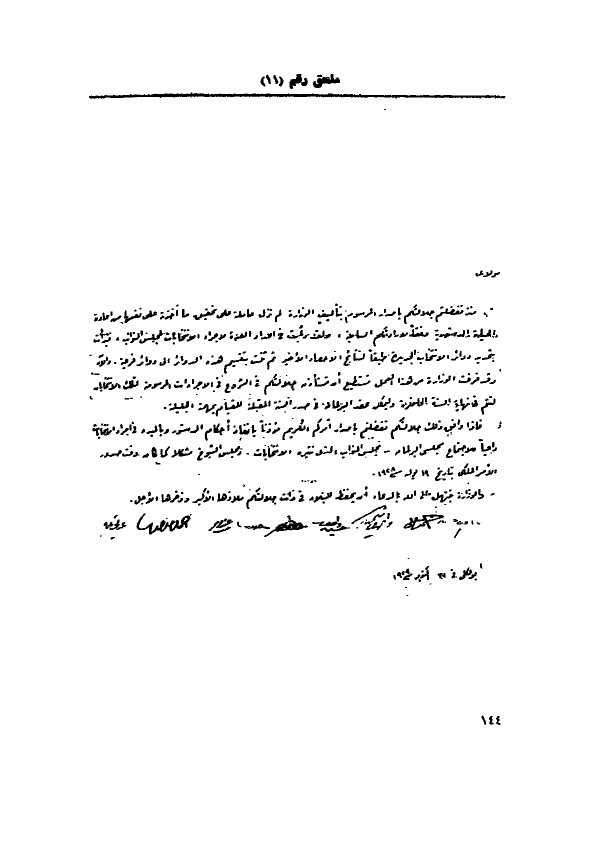 ملحق رقم (١١)
مولاى
منذ تفضلتم جلالتكم بإصدار المرسوم بتأليف الوزارة لم تزل عاملة على تحقيق ما أخذته على نفسها من إعادة
الحياة الدستورية وفقا لإرادتكم السامية، وقد فى إعداد العدة لإجراء الانتخابات لمجلس النواب، فبدأت
بتحديد دوائر الانتخاب طبقا لنتائج الإحصاء الأخير ثم تمت بتقسيم هذه الدوائر إلى دوائر فرعية. والآن
وقد فرغت الوزارة من هذا العمل تستطيع أن تستأذن جلالتكم فى الشروع فى الإجراءات المرسومة لتلك الانتخابات
لتتم فى نهاية السنة الحاضرة وليمكن عقد البرلمان فى صدر السنة المقبلة للقيام بمهمته الجليلة.
فإذا وافق ذلك جلالتكم تفضلتم بإصدار أمركم الكريم مؤذنا بإنفاذ أحكام الدستور وبالبدء فى إجراء الانتخابات
داعيا لاجتماع مجلسى البرلمان - مجلس النواب الذى تنتجه الانتخابات - ومجلس الشيوخ مشكلا كما كان وقت صدور
الأمر الملكى بتاريخ ١٩ يوليه سنة ١٩٢٨.
والوزارة تبتهل إلى الله بالدعاء أن يحفظ للبلاد فى ذات جلالتكم ملاذها الأكبر وذخرها الأجل.
بولكلى فى ٣١ أكتوبر سنة ١٩٢٩
١٤٤